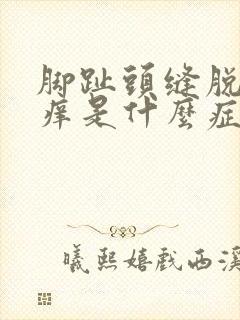 脚趾頭缝脱
痒是什麼症
曦熙嬉戲西溪